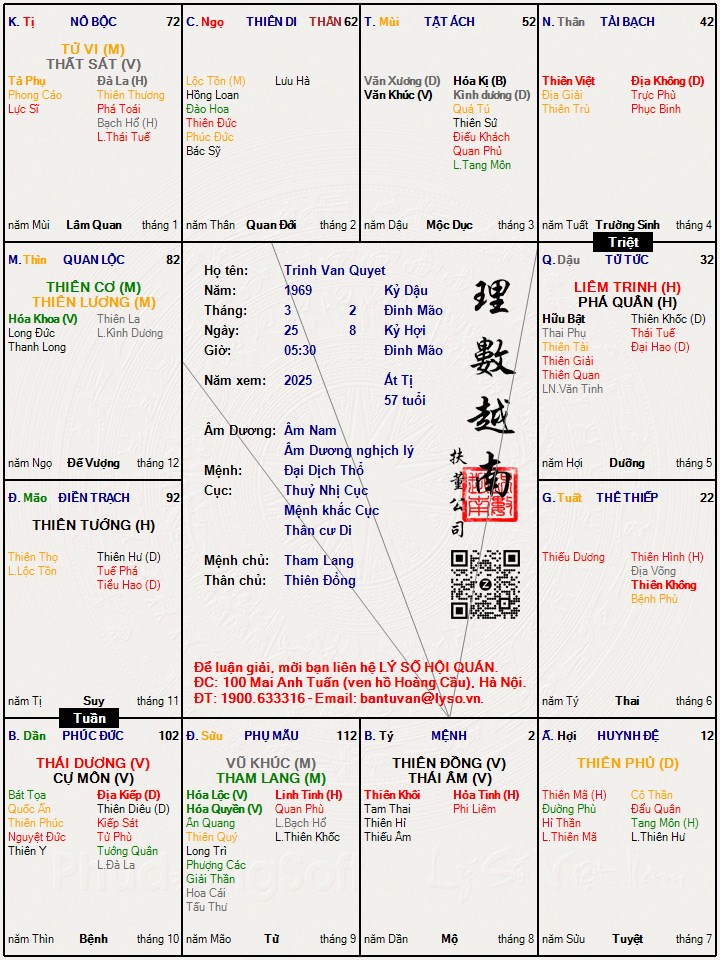 K. Tị NÔ BỘC 72
TỬ VI (M)
THẤT SÁT (V)
Tả Phụ Đà La (H)
Phong Cáo Thiên Thương
Lực Sĩ Phá Toái
Bạch Hổ (H)
L.Thái Tuế
năm Mùi Lâm Quan tháng 1
C. Ngọ THIÊN DI THÂN 62
Lộc Tồn (M) Lưu Hà
Hồng Loan
Đào Hoa
Thiên Đức
Phúc Đức
Bác Sỹ
năm Thân Quan Đới tháng 2
T. Mùi TẬT ÁCH 52
Văn Xương (D) Hóa Kị (B)
Văn Khúc (V) Kình dương (D)
Quả Tú
Thiên Sứ
Điếu Khách
Quan Phủ
L.Tang Môn
năm Dậu Mộc Dục tháng 3
N. Thân TÀI BẠCH 42
Thiên Việt Địa Không (D)
Địa Giải Trực Phù
Thiên Trù Phục Binh
năm Tuất Trường Sinh tháng 4
Triệt
M. Thìn QUAN LỘC 82
THIÊN CƠ (M)
THIÊN LƯƠNG (M)
Hóa Khoa (V) Thiên La
Long Đức L.Kình Dương
Thanh Long
năm Ngọ Đế Vượng tháng 12
Họ tên: Trinh Van Quyet
Năm: 1969 Kỷ Dậu
Tháng: 3 2 Đinh Mão
Ngày: 25 8 Kỷ Hợi
Giờ: 05:30 Đinh Mão
Năm xem: 2025 Ất Tị
57 tuổi
Âm Dương: Âm Nam
Âm Dương nghịch lý
Mệnh: Đại Dịch Thổ
Cục: Thuỷ Nhị Cục
Mệnh khắc Cục
Thân cư Di
Mệnh chủ: Tham Lang
Thân chủ: Thiên Đồng
理數越南
扶董公司
Để luận giải, mời bạn liên hệ LÝ SỐ HỘI QUÁN.
ĐC: 100 Mai Anh Tuấn (ven hồ Hoàng Cầu), Hà Nội.
ĐT: 1900.633316 - Email: bantuvan@lyso.vn.
Q. Dậu TỬ TỨC 32
LIÊM TRINH (H)
PHÁ QUÂN (H)
Hữu Bật Thiên Khốc (D)
Thai Phụ Thái Tuế
Thiên Tài Đại Hao (D)
Thiên Giải
Thiên Quan
LN.Văn Tinh
năm Hợi Dưỡng tháng 5
Đ. Mão ĐIỀN TRẠCH 92
THIÊN TƯỚNG (H)
Thiên Thọ Thiên Hư (D)
L.Lộc Tồn Tuế Phá
Tiểu Hao (D)
năm Tị Suy tháng 11
G. Tuất THÊ THIẾP 22
Thiếu Dương Thiên Hình (H)
Địa Võng
Thiên Không
Bệnh Phù
năm Tý Thai tháng 6
Tuần
B. Dần PHÚC ĐỨC 102
THÁI DƯƠNG (V)
CỰ MÔN (V)
Bát Tọa Địa Kiếp (D)
Quốc Ấn Thiên Diêu (D)
Thiên Phúc Kiếp Sát
Nguyệt Đức Tử Phù
Thiên Y Tướng Quân
L.Đà La
năm Thìn Bệnh tháng 10
Đ. Sửu PHỤ MẪU 112
VŨ KHÚC (M)
THAM LANG (M)
Hóa Lộc (V) Linh Tinh (H)
Hóa Quyền (V) Quan Phù
Ân Quang L.Bạch Hổ
Thiên Quý L.Thiên Khốc
Long Trì
Phượng Các
Giải Thần
Hoa Cái
Tấu Thư
năm Mão Tử tháng 9
B. Tý MỆNH 2
THIÊN ĐỒNG (V)
THÁI ÂM (V)
Thiên Khôi Hỏa Tinh (H)
Tam Thai Phi Liêm
Thiên Hỉ
Thiếu Âm
năm Dần Mộ tháng 8
Ấ. Hợi HUYNH ĐỆ 12
THIÊN PHỦ (D)
Thiên Mã (H) Cô Thần
Đường Phù Đẩu Quân
Hỉ Thần Tang Môn (H)
L.Thiên Mã L.Thiên Hư
năm Sửu Tuyệt tháng 7